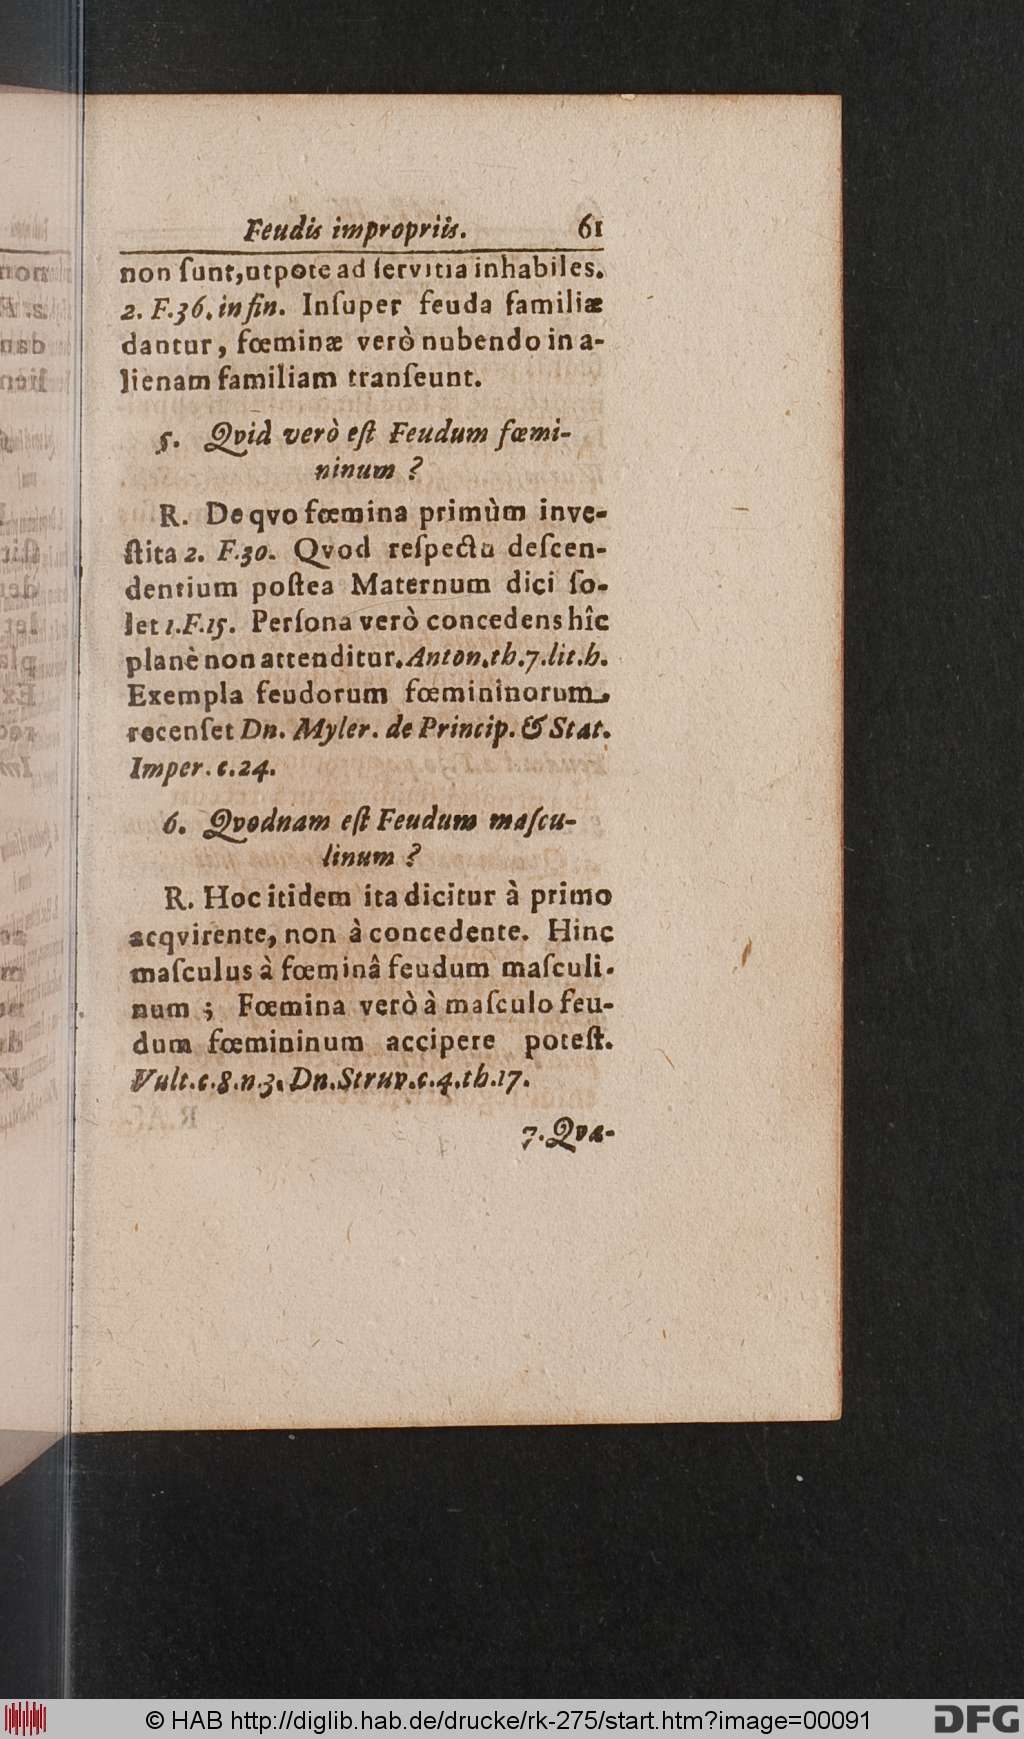 Feudis impropriis. 61
non ſunt, utpote ad ſervitia inhabiles.
2. F.36. in fin. Inſuper feuda familiæ
dantur, fœminæ verò nubendo in a-
lienam familiam tranſeunt.
5. Qvid verò eſt Feudum fœmi-
ninum ?
R. De qvo fœmina primùm inve-
ſtita 2. F.30. Qvod reſpectu deſcen-
dentium poſtea Maternum dici ſo-
let 1.F.15. Perſona verò concedens hîc
planè non attenditur. Anton.th.7.lit.b.
Exempla feudorum fœmininorum
recenſet Dn. Myler. de Princip. & Stat.
Imper. c.24.
6. Qvodnam eſt Feudum maſcu-
linum ?
R. Hoc itidem ita dicitur à primo
acqvirente, non à concedente. Hinc
maſculus à fœminâ feudum maſculi-
num ; Fœmina verò à maſculo feu-
dum fœmininum accipere poteſt.
Vult.c.8.n.3. Dn.Struv.c.4.th.17.
7. Qva-
© HAB http://diglib.hab.de/drucke/rk-275/start.htm?image=00091
DFG